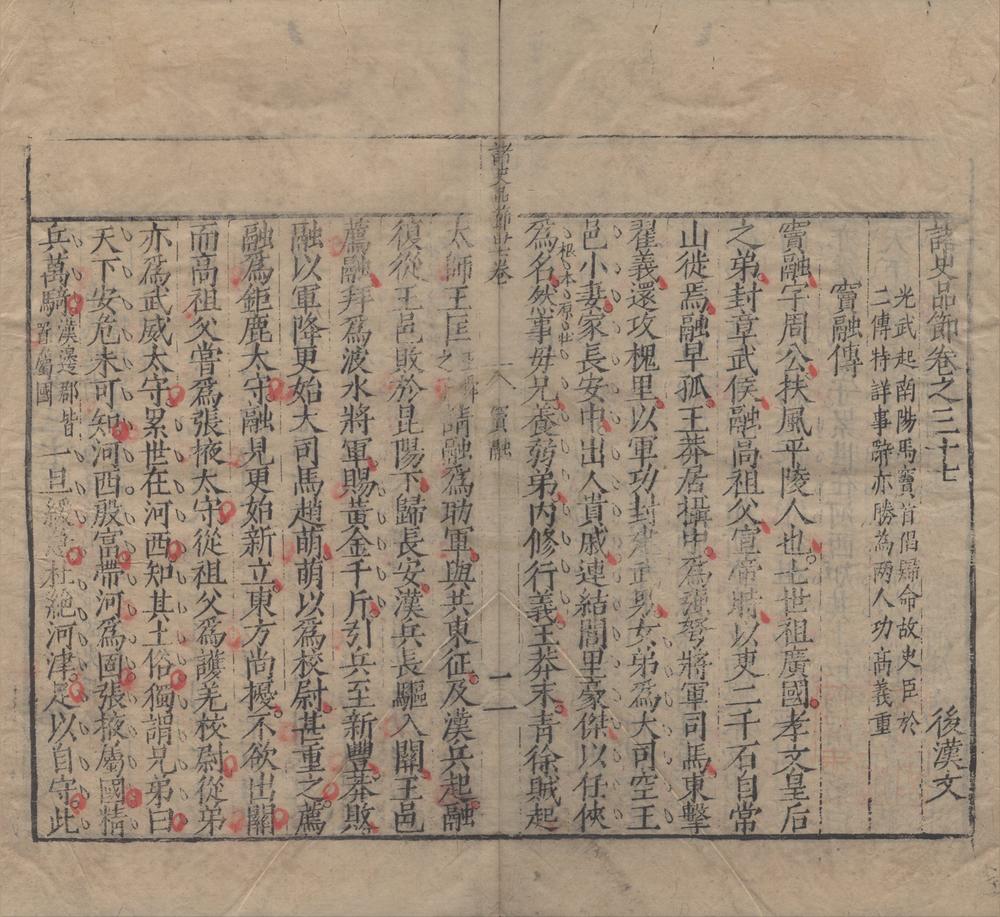 諸史品節卷之三十七　後漢文
光武起南陽馬竇首倡歸命故史臣於
二傳特詳事辭亦勝為兩人功高義重
竇融傳
竇融字周公扶風平陵人也七世祖廣國孝文皇后
之弟封章武侯融高祖父宣帝時以吏二千石自常
山徙焉融早孤王莽居攝中為強弩將軍司馬東擊
翟義還攻槐里以軍功封建武男女弟為大司空王
邑小妻家長安中出入貴戚連結閭里豪傑以任俠
為名然事母兄養弱弟內修行義王莽末青徐賊起
根本原壯
諸史品節卷
竇融
一
太師王匡請融為助軍與其東征及漢兵起融
復從王邑敗於昆陽下歸長安漢兵長驅入關王邑
薦融拜為波水將軍賜黃金千斤引兵至新豐莽敗
融以軍降更始大司馬趙萌萌以為校尉甚重之薦
融為鉅鹿太守融見更始新立東方尚擾不欲出關
而高祖父嘗為張掖太守從祖父為護羌校尉從弟
亦為武威太守累世在河西知其土俗獨謂兄弟曰
天下安危未可知河西殷富帶河為固張掖屬國精
兵萬騎漢邊郡皆置屬國一旦緩急杜絕河津足以自守此